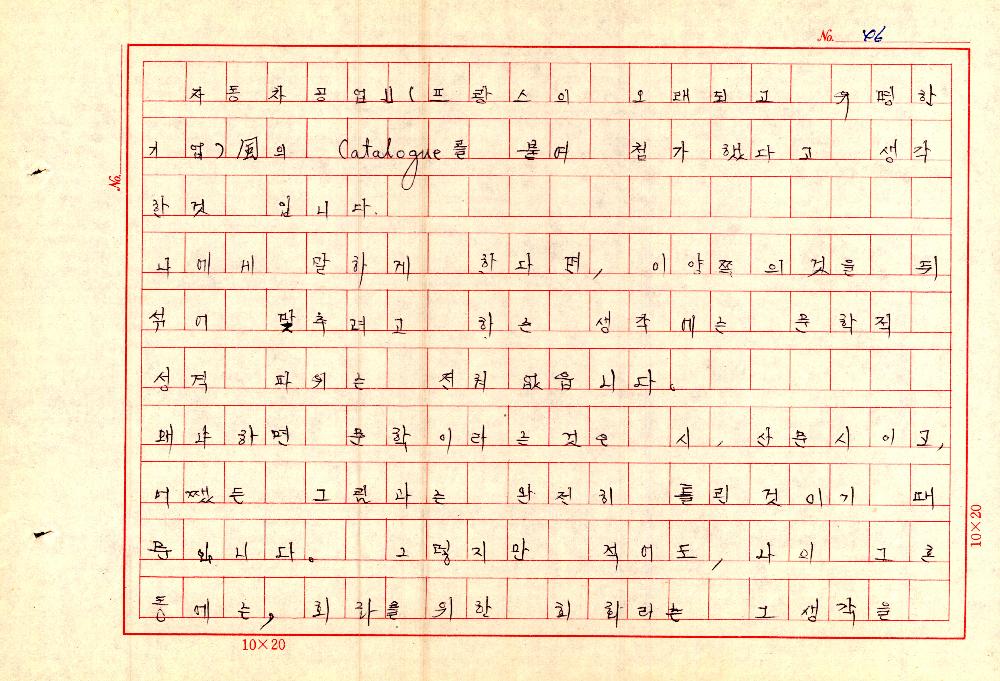 No. 46
자동차공업」(프랑스의 오래되고 유명한
기업)風의 Catalogue를 붙여 첨가했다고 생각
한것 입니다.
나에게 말하게 한다면, 이양쪽의것을 뒤
섞어 맞추려고 하는 생각에는 문학적
성격 따위는 전혀 없읍니다.
왜냐하면 문학이라는것은 시, 산문시이고,
어쨌든 그림과는 완전히 틀린것이기 때
문입니다. 그렇지만 적어도, 나의 그로
통에는, 회화를 위한 회화라는 그생각을
No.
10×20
10×20